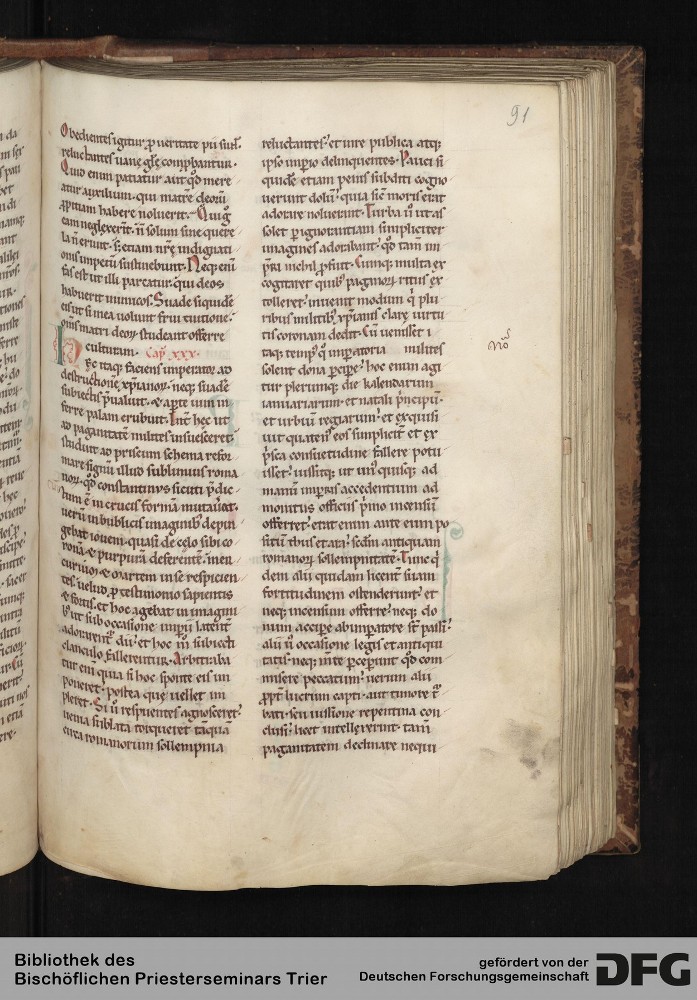 91
Obedientes igitur ꝓ ueritate pii sunt.
reluctantes uane glę comphantur.
Quid enim patiatur aut qd mere
atur auxilium. qui matrē deorū
ꝓpitiam habere noluerit. Quiǵ
eam neglexerit. ñ solum sine quere
la ñ erunt. sȝ etiam nrę indignati
onis impetū sustinebunt. Neqȝ enī
fas est ut illi parcatur. qui deos
habuerit inimicos. Suade siquidē
eis ut si mea uolunt frui tuitione.
omīs matri deorȝ studeant offerre
culturam. Cap̄ xxx.
Hęc itaqȝ faciens imperator ad
destructionē xp̄ianorȝ. neqȝ suadē
subiectis p̄ualuit. & aperte uim in
ferre palam erubuit. Int̄ hec ut
ad paganitatē milites insuesceret.
studuit ad priscum schema refor
mare signū illud sublimius roma
norȝ. qd constantinus sicuti p̄dic
tum ē in crucis formā mutauerat.
uerū in publicis imaginibȝ depin
gebat iouem. quasi de celo sibi co
ronā & purpurā deferentē. mer
curiū & martem in se respicien
tes. uelud ꝓ testimonio sapientis
& fortis. et hoc agebat in imagini
bȝ ut sub occasione imperii latent̄
adorarent̄ dii. et hoc m̄ subiecti
clanculo fallerentur. Arbitraba
tur enī quia si hoc sponte eis im
poneret. postea quę uellet im
pleret. Si ū respuentes agnosceret.
uenia sublata torqueret tāquā
circa romanorum sollempnia
reluctantes. et iure publica atqȝ
ipso imperio delinquentes. Pauci si
quidē etiam penis subditi cogno
uerunt dolū. quia sic̄ moris erat
adorare noluerunt. Turba ū ut as
solet ꝑ ignorantiam simpliciter
imagines adorabant. qd tam̄ im
p̄ri nichil ꝓfuit. Cumqȝ multa ex
cogitaret quibȝ paginorȝ ritus ex
tolleret. inuenit modum q̄ plu
ribus militibȝ xp̄ianis clarę uirtu
tis coronam dedit. Cū uenisset i
taqȝ tempȝ q̄ imperatoria milites
solent dona ꝑcipe. hoc enim agi
tur plerumqȝ die kalendarum
ianuariarum. et natali principū.
et urbiū regiarum. et exquisi
uit quaten eos simplicit̄ et ex
p̄sca consuetudine fallere potu
isset. iussitqȝ ut unȝ quisqȝ ad
manū imperiis accedentium ad
monitus officiis primo incensū
offerret. erat enim ante eum po
situm thus et ara. scdm antiquam
romanorȝ sollempnitatē. Tunc q̄
dem alii quidam licent̄ suam
fortitudinem ostenderunt. et
neqȝ incensum offerre. neqȝ do
num accipe ab imperatore st̄ passi.
alii ū occasione legis et antiqui
tatis. neqȝ mente perceperunt qd com
misere peccatum. uerum alii
ꝓpt̄ lucrum capti. aut timore t̄
bati. seu iussione repentina con
clusi. licet intellexerint. tam̄
paganitatem declinare nequi
Bibliothek des
Bischöflichen Priesterseminars Trier
gefördert von der
Deutschen Forschungsgemeinschaft
DFG